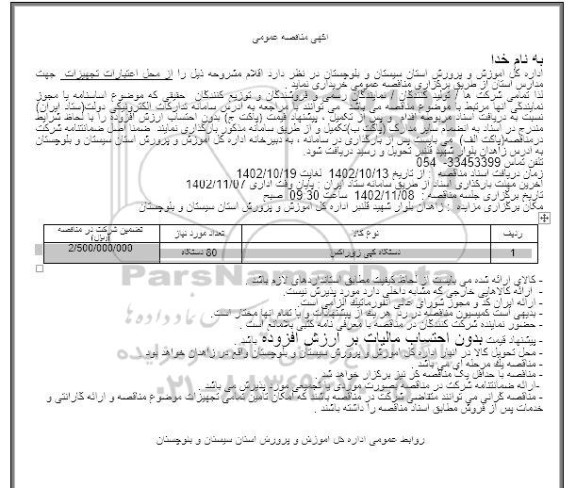 اگهی مناقصه عمومی
به نام خدا
اداره کل اموزش و پرورش استان سیستان و بلوچستان در نظر دارد اقلام مشروحه ذیل را از محل اعتبارات تجهیزات جهت
مدارس استان از طریق برگزاری مناقصه عمومی خریداری نماید
لذا تمامی شرکت ها / تولید کنندگان / نمایندگان رسمی و فروشندگان و توزیع کنندگان حقیقی که موضوع اساسنامه یا مجوز
نمایندگی آنها مرتبط با موضوع مناقصه می باشد می توانند با مراجعه به آدرس سامانه تدارکات الکترونیکی دولت(ستاد ایران)
نسبت به دریافت اسناد مربوطه اقدام و پس از تکمیل ، پیشنهاد قیمت (پاکت ج) بدون احتساب ارزش افزوده را با لحاظ شرایط
مندرج در اسناد به انضمام سایر مدارک (پاکت ب)تکمیل و از طریق سامانه مذکور بارگذاری نمایند ضمنا اصل ضمانتنامه شرکت
درمناقصه(پاکت الف) می بایست پس از بارگذاری در سامانه ، به دبیرخانه اداره کل اموزش و پرورش استان سیستان و بلوچستان
به ادرس زاهدان بلوار شهید قلنبر تحویل و رسید دریافت شود.
تلفن تماس 33453399- 054
زمان دریافت اسناد مناقصه : از تاریخ 1402/10/13 لغایت 1402/10/19
آخرین مهلت بارگذاری اسناد از طریق سامانه ستاد ایران : پایان وقت اداری 1402/11/07
تاریخ برگزاری جلسه مناقصه : 1402/11/08 ساعت 09:30 صبح
مکان برگزاری مزایده : زاهدان بلوار شهید قلنبر اداره کل اموزش و پرورش استان سیستان و بلوچستان
ردیف نوع کالا تعداد مورد نیاز تضمین شرکت در مناقصه (ریال)
1 دستگاه کپی زیراکس 60 دستگاه 2/500/000/000
- کالای ارائه شده می بایست از لحاظ کیفیت مطابق استانداردهای لازم باشد .
- ارائه کالاهایی خارجی که مشابه داخلی دارد مورد پذیرش نیست.
- ارائه ایران کد و مجوز شورای عالی انفورماتیک الزامی است.
- بدیهی است کمیسیون مناقصه در رد هر یک از پیشنهادات و یا تمام آنها مختار است.
- حضور نماینده شرکت کنندگان در مناقصه با معرفی نامه کتبی بلامانع است .
- پیشنهاد قیمت بدون احتساب مالیات بر ارزش افزوده باشد .
- محل تحویل کالا در انبار اداره کل اموزش و پرورش سیستان و بلوچستان واقع در زاهدان خواهد بود
- مناقصه یک مرحله ای می باشد .
- مناقصه با حداقل یک مناقصه گر نیز برگزار خواهد شد.
-ارائه ضمانتنامه شرکت در مناقصه بصورت موردی و تجمیعی مورد پذیرش می باشد .
- مناقصه گرانی می توانند متقاضی شرکت در مناقصه باشند که امکان تامین تمامی تجهیزات موضوع مناقصه و ارائه گارانتی و
خدمات پس از فروش مطابق اسناد مناقصه را داشته باشند .
روابط عمومی اداره کل اموزش و پرورش استان سیستان و بلوچستان
ParsNamadData